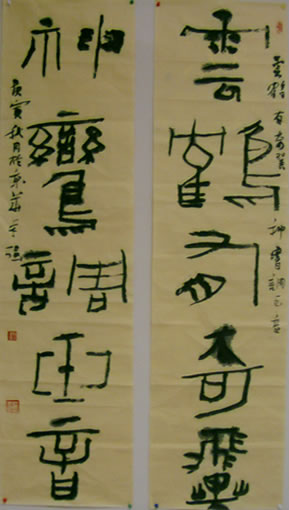 雲鶴有奇翼神鸞調玉音
雲鶴有奇翼
神鸞調玉音
庚寅秋月於京華